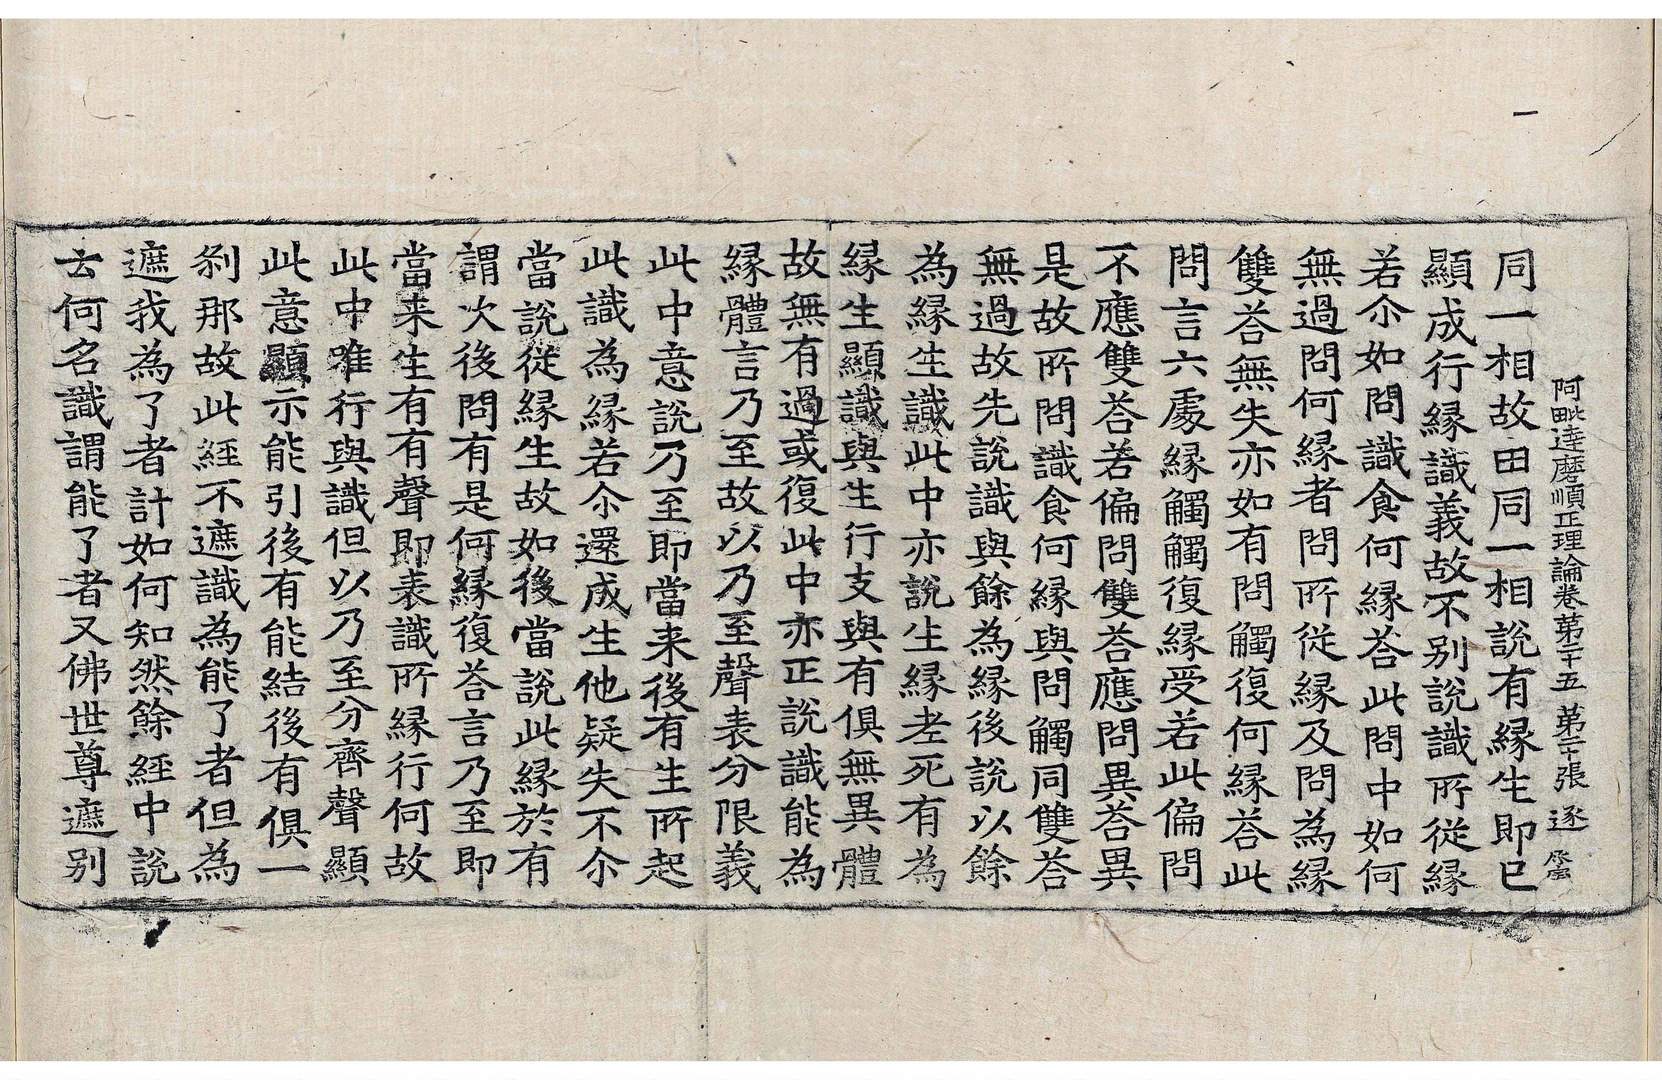 阿毗達磨順正理論卷第二十五 第二十張 逐
同一相故田同一相說有緣生即已
顯成行緣識義故不別說識所從緣
若尒如問識食何緣荅此問中如何
無過問何緣者問所從緣及問為緣
雙荅無失亦如有問觸復何緣荅此
問言六處緣觸觸復緣受若此偏問
不應雙荅若偏問雙荅應問異荅異
是故所問識食何緣與問觸同雙荅
無過故先說識與餘為緣後說以餘
為緣生識此中亦說生緣老死有為
緣生顯識與生行支與有俱無異體
故無有過或復此中亦正說識能為
緣體言乃至故以乃至聲表分限義
此中意說乃至即當来後有生所起
此識為緣若尒還成生他疑失不尒
當說從緣生故如後當說此緣於有
謂次後問有是何緣復荅言乃至即
當来生有有聲即表識所緣行何故
此中唯行與識但以乃至分齊聲顯
此意顯示能引後有能結後有俱一
剎那故此經不遮識為能了者但為
遮我為了者計如何知然餘經中說
云何名識謂能了者又佛世尊遮別